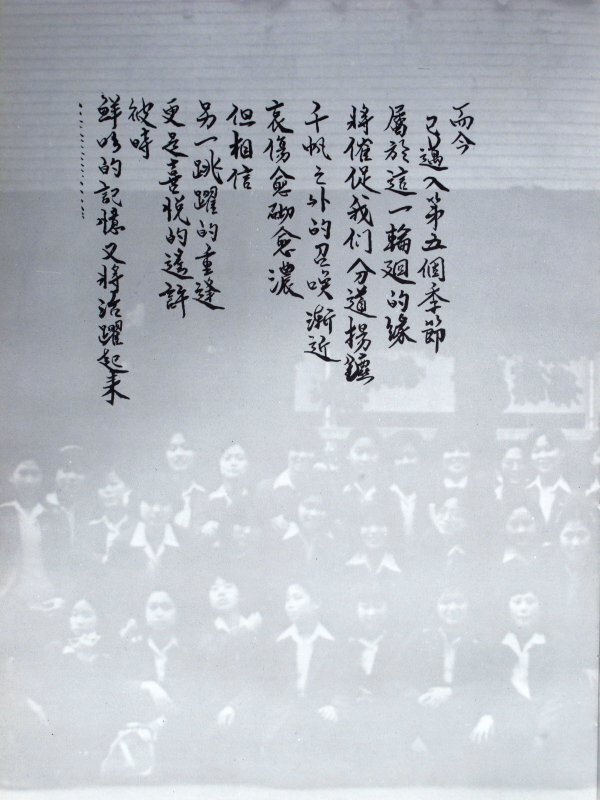 而今
已邁入第五個季節
屬於這一輪廻的緣
將催促我们分道揚鑣
千帆之外的召喚漸近
哀傷愈砌愈濃
但相信
另一跳躍的重逢
更是喜悅的許
彼時
鮮明的記憶又將活躍起來